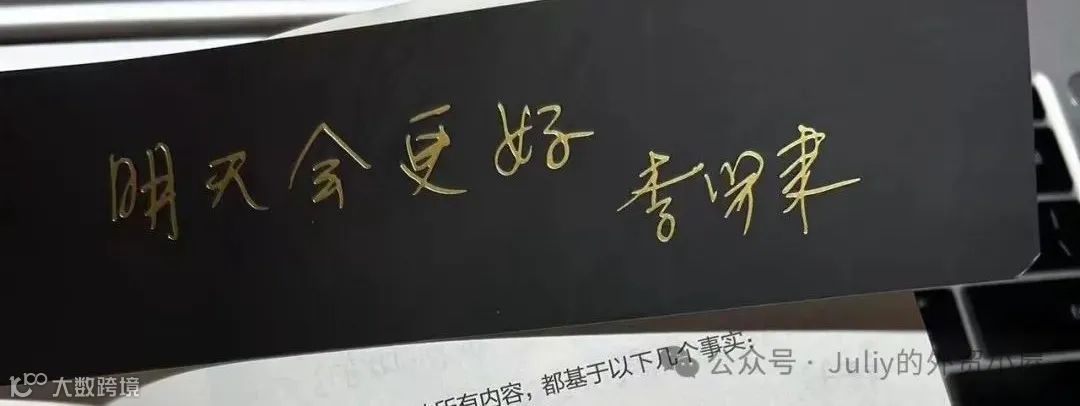 明天会更好
李笑来
所有内容，都基于以下几个事实：
公众号·Juliy的外贸小屋
大数跨境